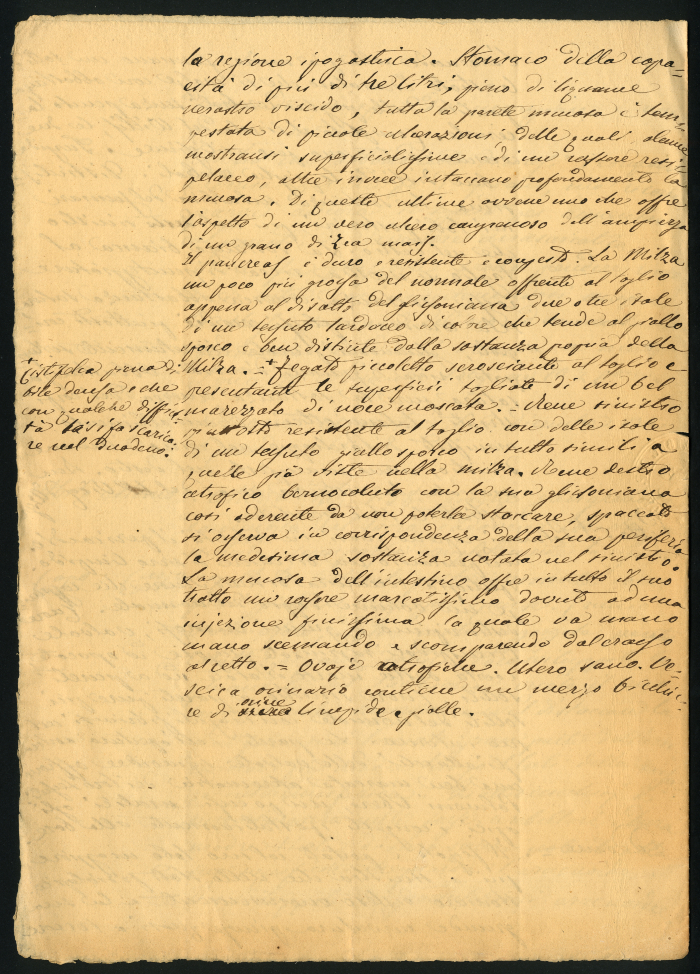 la regione ipogastrica. Stomaco della capa=
cità di più di tre litri, pieno di liquame
nerastro viscido, tutta la parete mucosa è tem=
pestata di piccole ulcerazioni delle quali alcune
mostransi superficialissime e di un rossore
altre invece intaccano profondamente la
mucosa. Di queste ultime avvene una che offre
l'aspetto di un vero ulcero cangrenoso dell'ampiezza
di un grano di zea mais.
Il pancreas è duro e resistente e congesto. La Milza
un poco più grossa del normale offrente al taglio
appena al disotto del glissoniana due o tre isole
di un tessuto lardaceo di colore che tende al giallo
sporco e ben distinte dalla sostanza propria della
Milza. = + Fegato piccoletto scrosciante al taglio e
presentante le superfici tagliate di un bel
marezzato di noce moscata. = Rene sinistro
piuttosto resistente al taglio con delle isole
di un tessuto giallo sporco in tutto simili a
quelle già viste nella milza. Rene destro
atrofico bernoccoluto con la sua glissoniana
così aderente da non poterla staccare, spaccato
si osserva in corrispondenza della sua periferia
la medesima sostanza notata nel sinistro.
La mucosa dell'intestino offre in tutto il suo
tratto un rossore marcatissimo dovuto ad una
injezione finissima la quale va mano
mano scemando e scomparendo dal crasso
al retto. = Ovaje atrofiche. Utero sano. Ve=
scica orinaria contiene un mezzo bicchie=
re di orine limpide e gialle.
+
Cistifelea piena di
bile densa e che
con qualche diffici=
tà si fa scarica=
re nel duodeno.